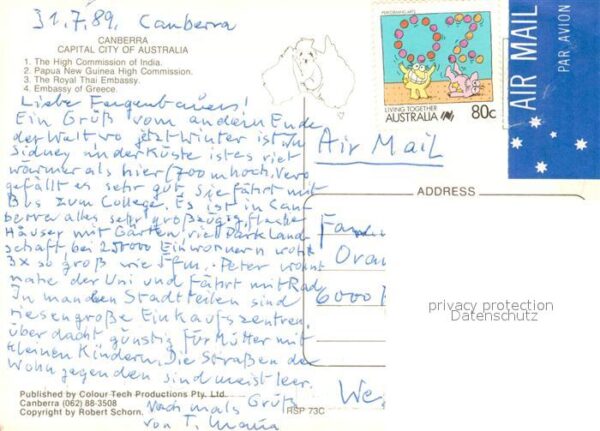 31.7.89. Canberra
CANBERRA
CAPITAL CITY OF AUSTRALIA
1. The High Commission of India.
2. Papua New Guinea High Commission.
3. The Royal Thai Embassy.
4. Embassy of Greece.
PERFORMING ARTS
LIVING TOGETHER
AUSTRALIA 80c
AIR MAIL
PAR AVION
Liebe
Ein Gruß vom andern Ende
der Welt wo jetzt Winter ist in
Sidney in der Küste ist es viel
wärmer als hier (700 m hoch. Vero
gefällt es sehr gut sie fährt mit
Bus zum College. Es ist in Can-
berra alles sehr großzügig flache
Häuser mit Gärten, viel Parkland-
schaft, bei 250000 Einwohnern wohl
3x so groß wie Ffm. Peter wohnt
nahe der Uni und fährt mit Rad
In manchen Stadtteilen sind
riesengroße Einkaufszentren
überdacht günstig für Mütter mit
kleinen Kindern. Die Straßen der
Wohngegenden sind meist leer.
Nochmals Grüße
von T. Maria
Air Mail
ADDRESS
Fam.
Oran
6000
We
privacy protection
Datenschutz
Published by Colour Tech Productions Pty. Ltd.
Canberra (062) 88-3508
Copyright by Robert Schorn.
RSP 73C